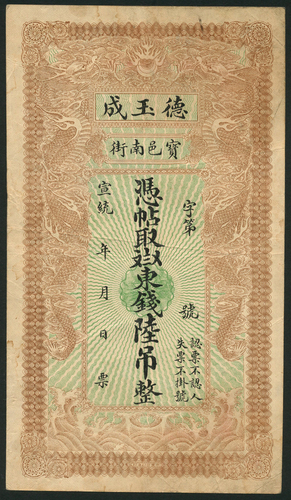 德玉成
寳邑南街
字第 號
憑帖取東錢陸吊整
宣統 年 月 日 票
認票不認人
失票不掛號